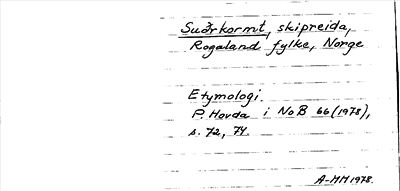 Suðrkormt, skipreida,
Rogaland fylke, Norge
Etymologi.
P. Hovda i NoB 66 (1978),
s. 72, 74.
A-MM 1978.